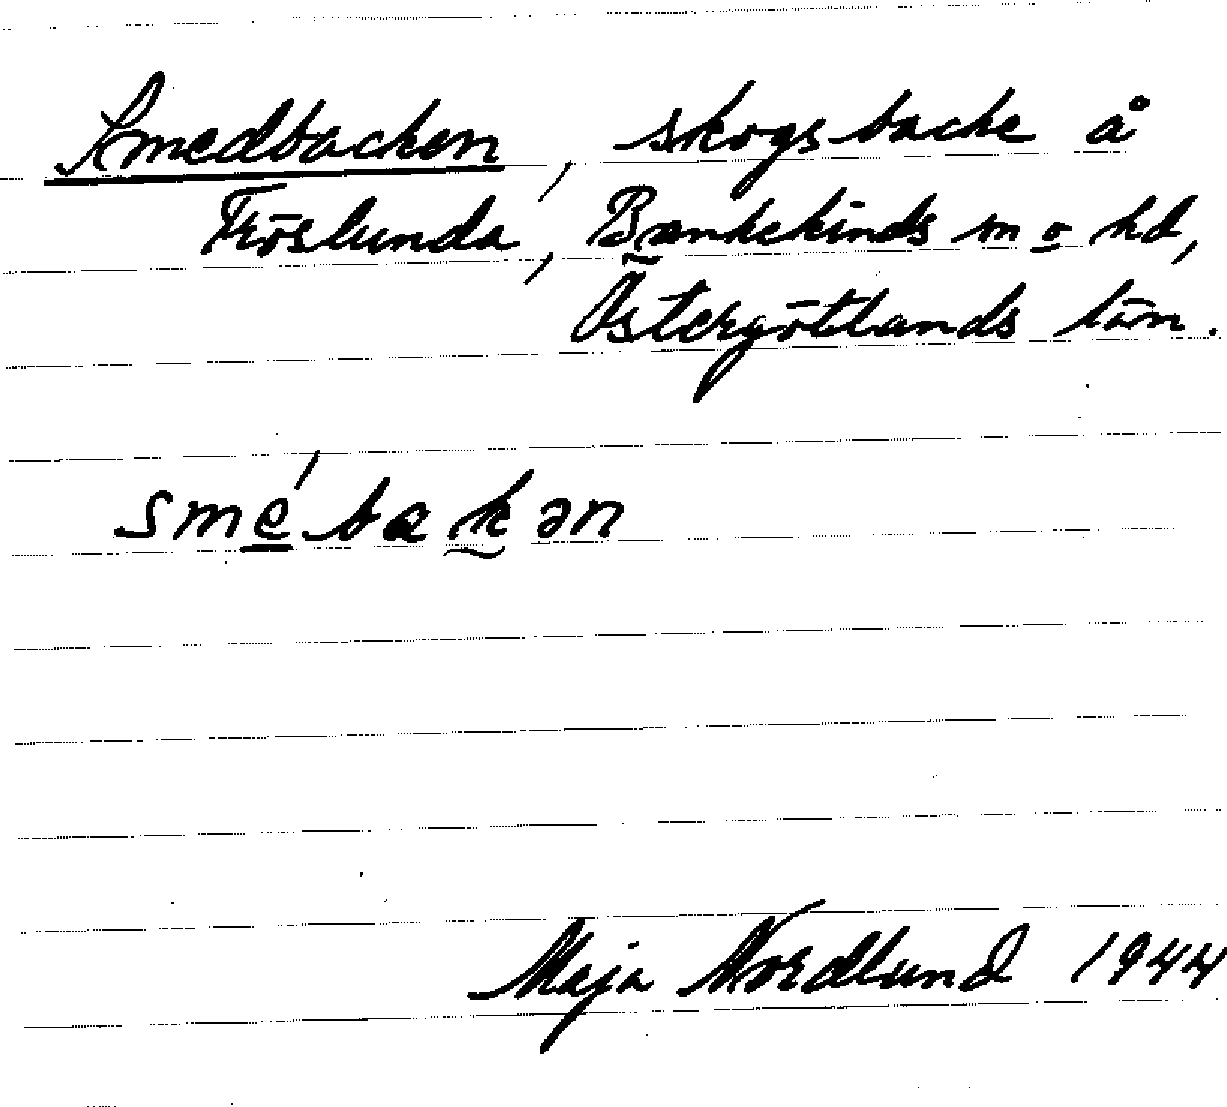 Smedbacken, skogsbacke å
Fröslunda, Bankekinds sn o hd,
Östergötlands län.
smé̱bakən
Maja Nordlund 1944